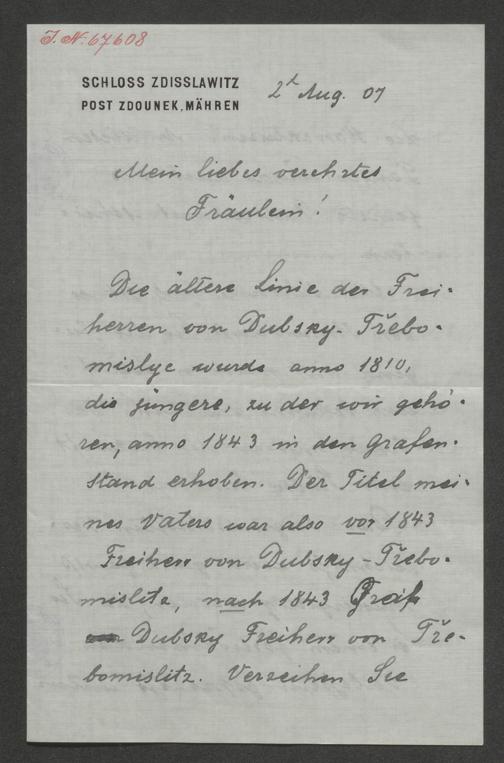 J. N. 67608
SCHLOSS ZDISSLAWITZ
POST ZDOUNEK, MÄHREN
2t Aug. 07
Mein liebes verehrtes
Fräulein!
Die ältere Linie der Frei-
herren von Dubsky-Třebo-
mislyc wurde anno 1810,
die jüngere, zu der wir gehö-
ren, anno 1843 in den Grafen-
stand erhoben. Der Titel mei-
nes Vaters war also vor 1843
Freiherr von Dubsky-Třebo-
mislitz, nach 1843 Graf
Dubsky Freiherr von Tře-
bomislitz. Verzeihen Sie